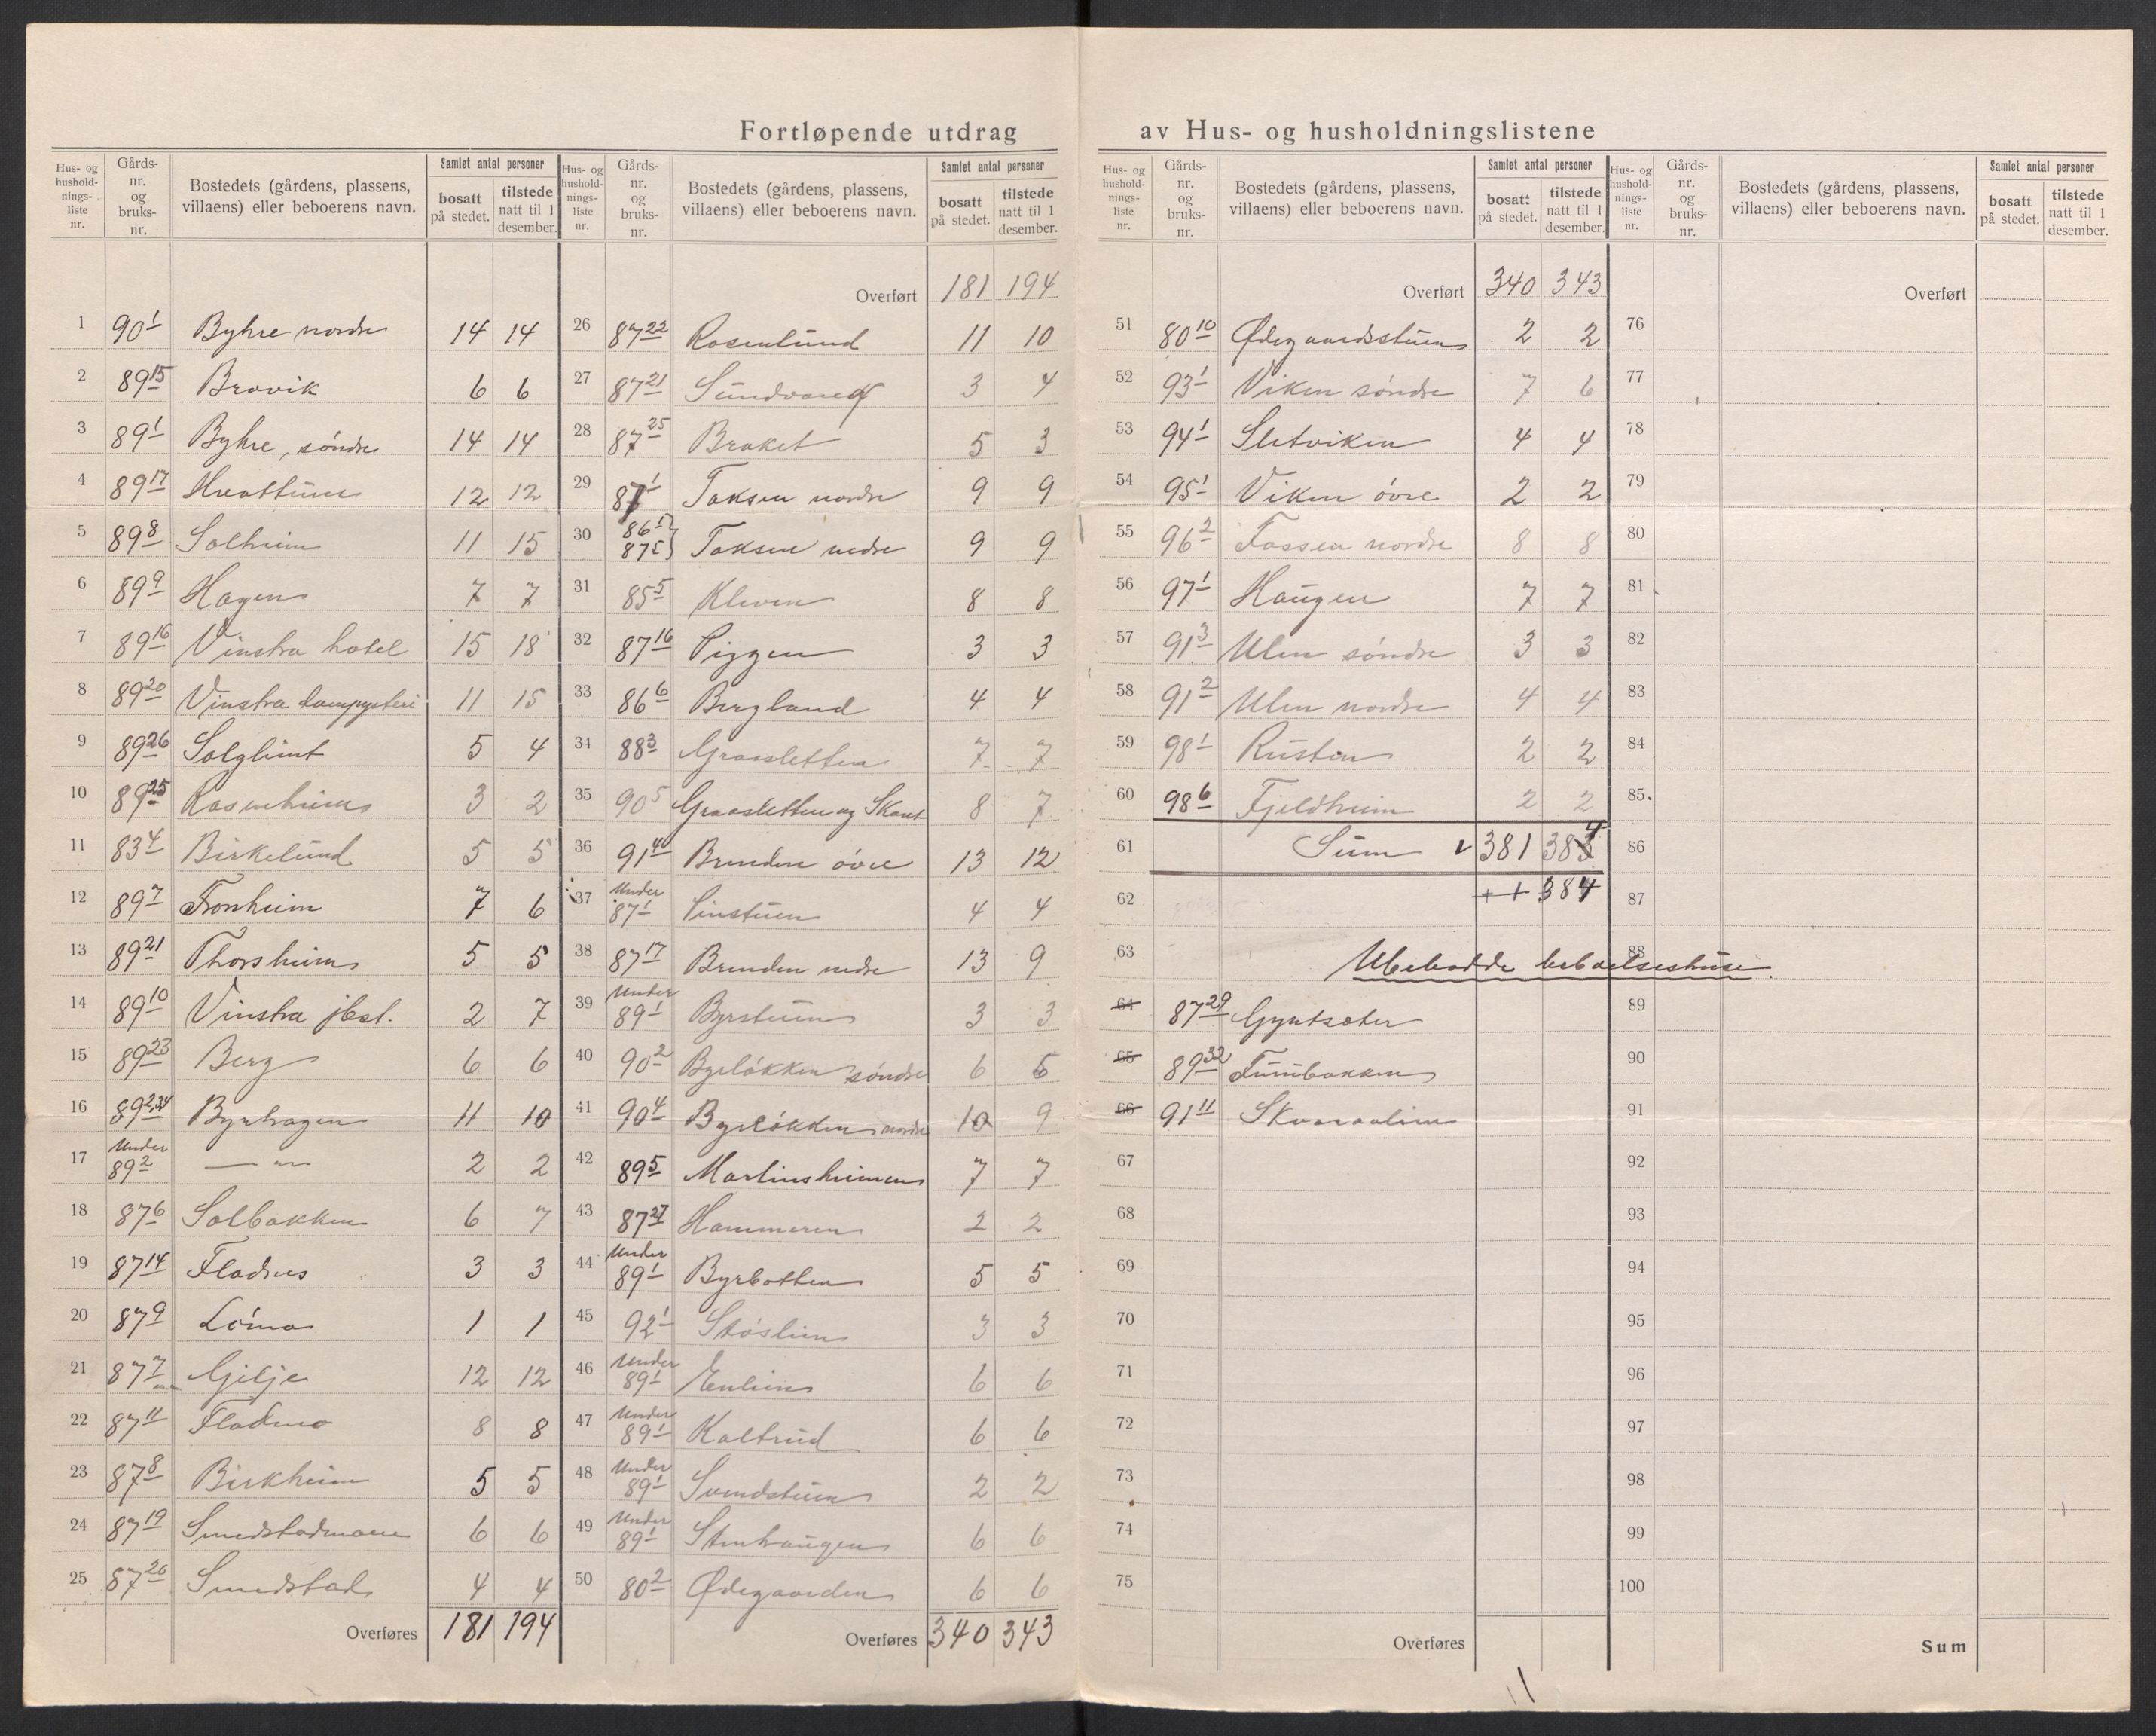 Fortløpende utdrag av Hus- og husholdningslistene
Hus- og hushold- nings- liste nr. Gårds- nr. og bruks- nr. Bostedets (gårdens, plassens, villaens) eller beboerens navn. Samlet antal personer bosatt på stedet. tilstede natt til 1 desember.
1 90 1 Byhre nordre 14 14
2 89 15 Bravik 6 6
3 89 1 Byhre, søndre 14 14
4 89 17 Hvattum 12 12
5 89 8 Solheim 11 15
6 89 9 Hagen 7 7
7 89 16 Vinstra hotel 15 18
8 89 20 Vinstra dampysteri 11 15
9 89 26 Solglimt 5 4
10 89 25 Rosenheim 3 2
11 83 4 Birkelund 5 5
12 89 7 Fronheim 7 6
13 89 21 Thorsheim 5 5
14 89 10 Vinstra jbst. 2 7
15 89 23 Berg 6 6
16 89 2,34 Byrhagen 11 10
17 Under 89 2 — " — 2 2
18 87 6 Solbakken 6 7
19 87 14 Fladhus 3 3
20 87 9 Lömo 1 1
21 87 7 Gilje 12 12
22 87 11 Fladmo 8 8
23 87 8 Birkheim 5 5
24 87 19 Smedstadmoen 6 6
25 87 26 Smedstad 4 4
Overføres 181 194
Hus- og hushold- nings- liste nr. Gårds- nr. og bruks- nr. Bostedets (gårdens, plassens, villaens) eller beboerens navn. Samlet antal personer bosatt på stedet. tilstede natt til 1 desember.
Overført 181 194
26 87 22 Rosenlund 11 10
27 87 21 3 4
28 87 25 Braket 5 3
29 87 1 Toksen nordre 9 9
30 86 1 87 5 } Toksen nedre 9 9
31 85 5 Kleven 8 8
32 87 16 Piggen 3 3
33 86 6 Bergland 4 4
34 88 3 Graasletten 7 7
35 90 5 Graasletten og Skant 8 7
36 91 4 Brenden övre 13 12
37 Under 87 1 Linstuen 4 4
38 87 17 Brenden nedre 13 9
39 Under 89 1 Byrstuen 3 3
40 90 2 Byrløkken søndre 6 6
41 90 4 Byrløkken nordre 10 9
42 89 5 Martinsheimen 7 7
43 87 27 Hammeren 2 2
44 Under 89 1 Byrbotten 5 5
45 92 1 Støslien 3 3
46 Under 89 1 Enlien 6 6
47 Under 89 1 Kaltrud 6 6
48 Under 89 1 Svendstuen 2 2
49 Under 89 1 Stenhaugen 6 6
50 80 2 Ødegaarden 6 6
Overføres 340 343
Hus- og hushold- nings- liste nr. Gårds- nr. og bruks- nr. Bostedets (gårdens, plassens, villaens) eller beboerens navn. Samlet antal personer bosatt på stedet. tilstede natt til 1 desember.
Overført 340 343
51 80 10 Ødegaardsstuen 2 2
52 93 1 Viken søndre 7 6
53 94 1 Sletviken 4 4
54 95 1 Viken övre 2 2
55 96 2 Fossen nordre 8 8
56 97 1 Haugen 7 7
57 91 3 Ulen søndre 3 3
58 91 2 Ulen nordre 4 4
59 98 1 Rusten 2 2
60 98 6 Fjeldheim 2 2
61 Sum 381 384
62 + + 384
63 Ubebodde beboelseshuse.
64 87 29 Gyntsæter
65 89 32 Furubakken
66 91 11
67
68
69
70
71
72
73
74
75
Overføres
Hus- og hushold- nings- liste nr. Gårds- nr. og bruks- nr. Bostedets (gårdens, plassens, villaens) eller beboerens navn. Samlet antal personer bosatt på stedet. tilstede natt til 1 desember.
Overført
76
77
78
79
80
81
82
83
84
85
86
87
88
89
90
91
92
93
94
95
96
97
98
99
100
Sum